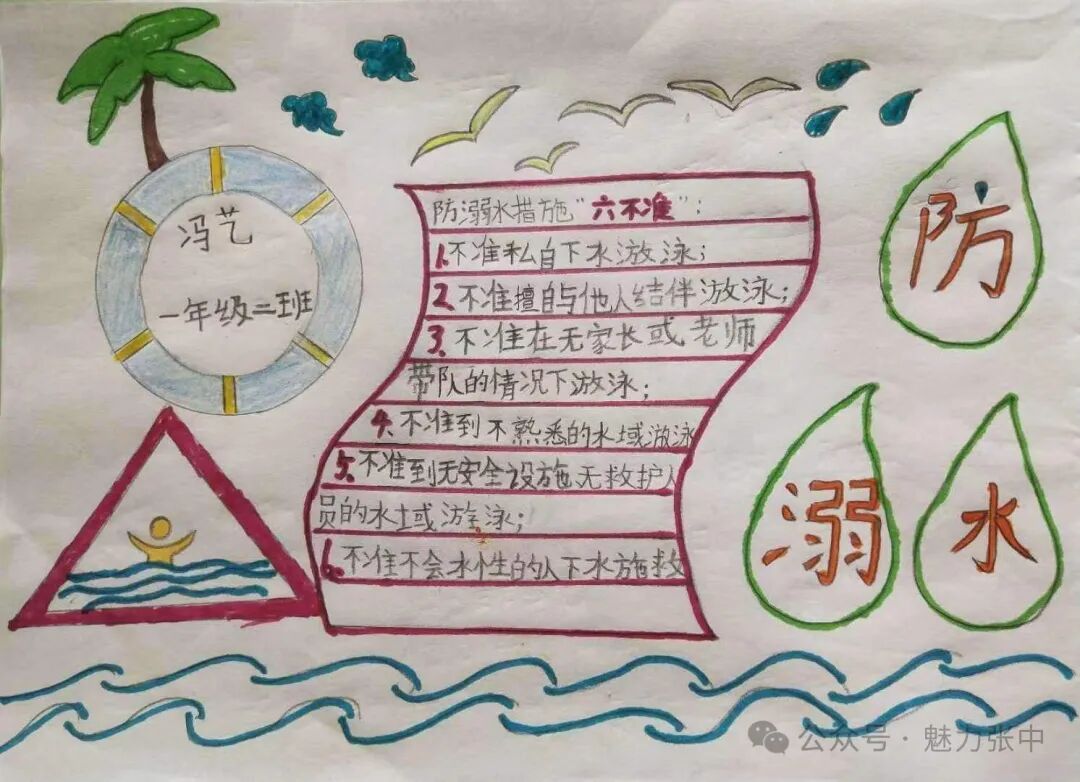 冯艺
一年级二班
防溺水措施"六不准"：
1.不准私自下水游泳；
2.不准擅自与他人结伴游泳；
3.不准在无家长或老师
带队的情况下游泳；
4.不准到不熟悉的水域游泳
5.不准到无安全设施无救护人
员的水域游泳；
6.不准不会水性的人下水施救
防
溺
水
公众号·魅力张中